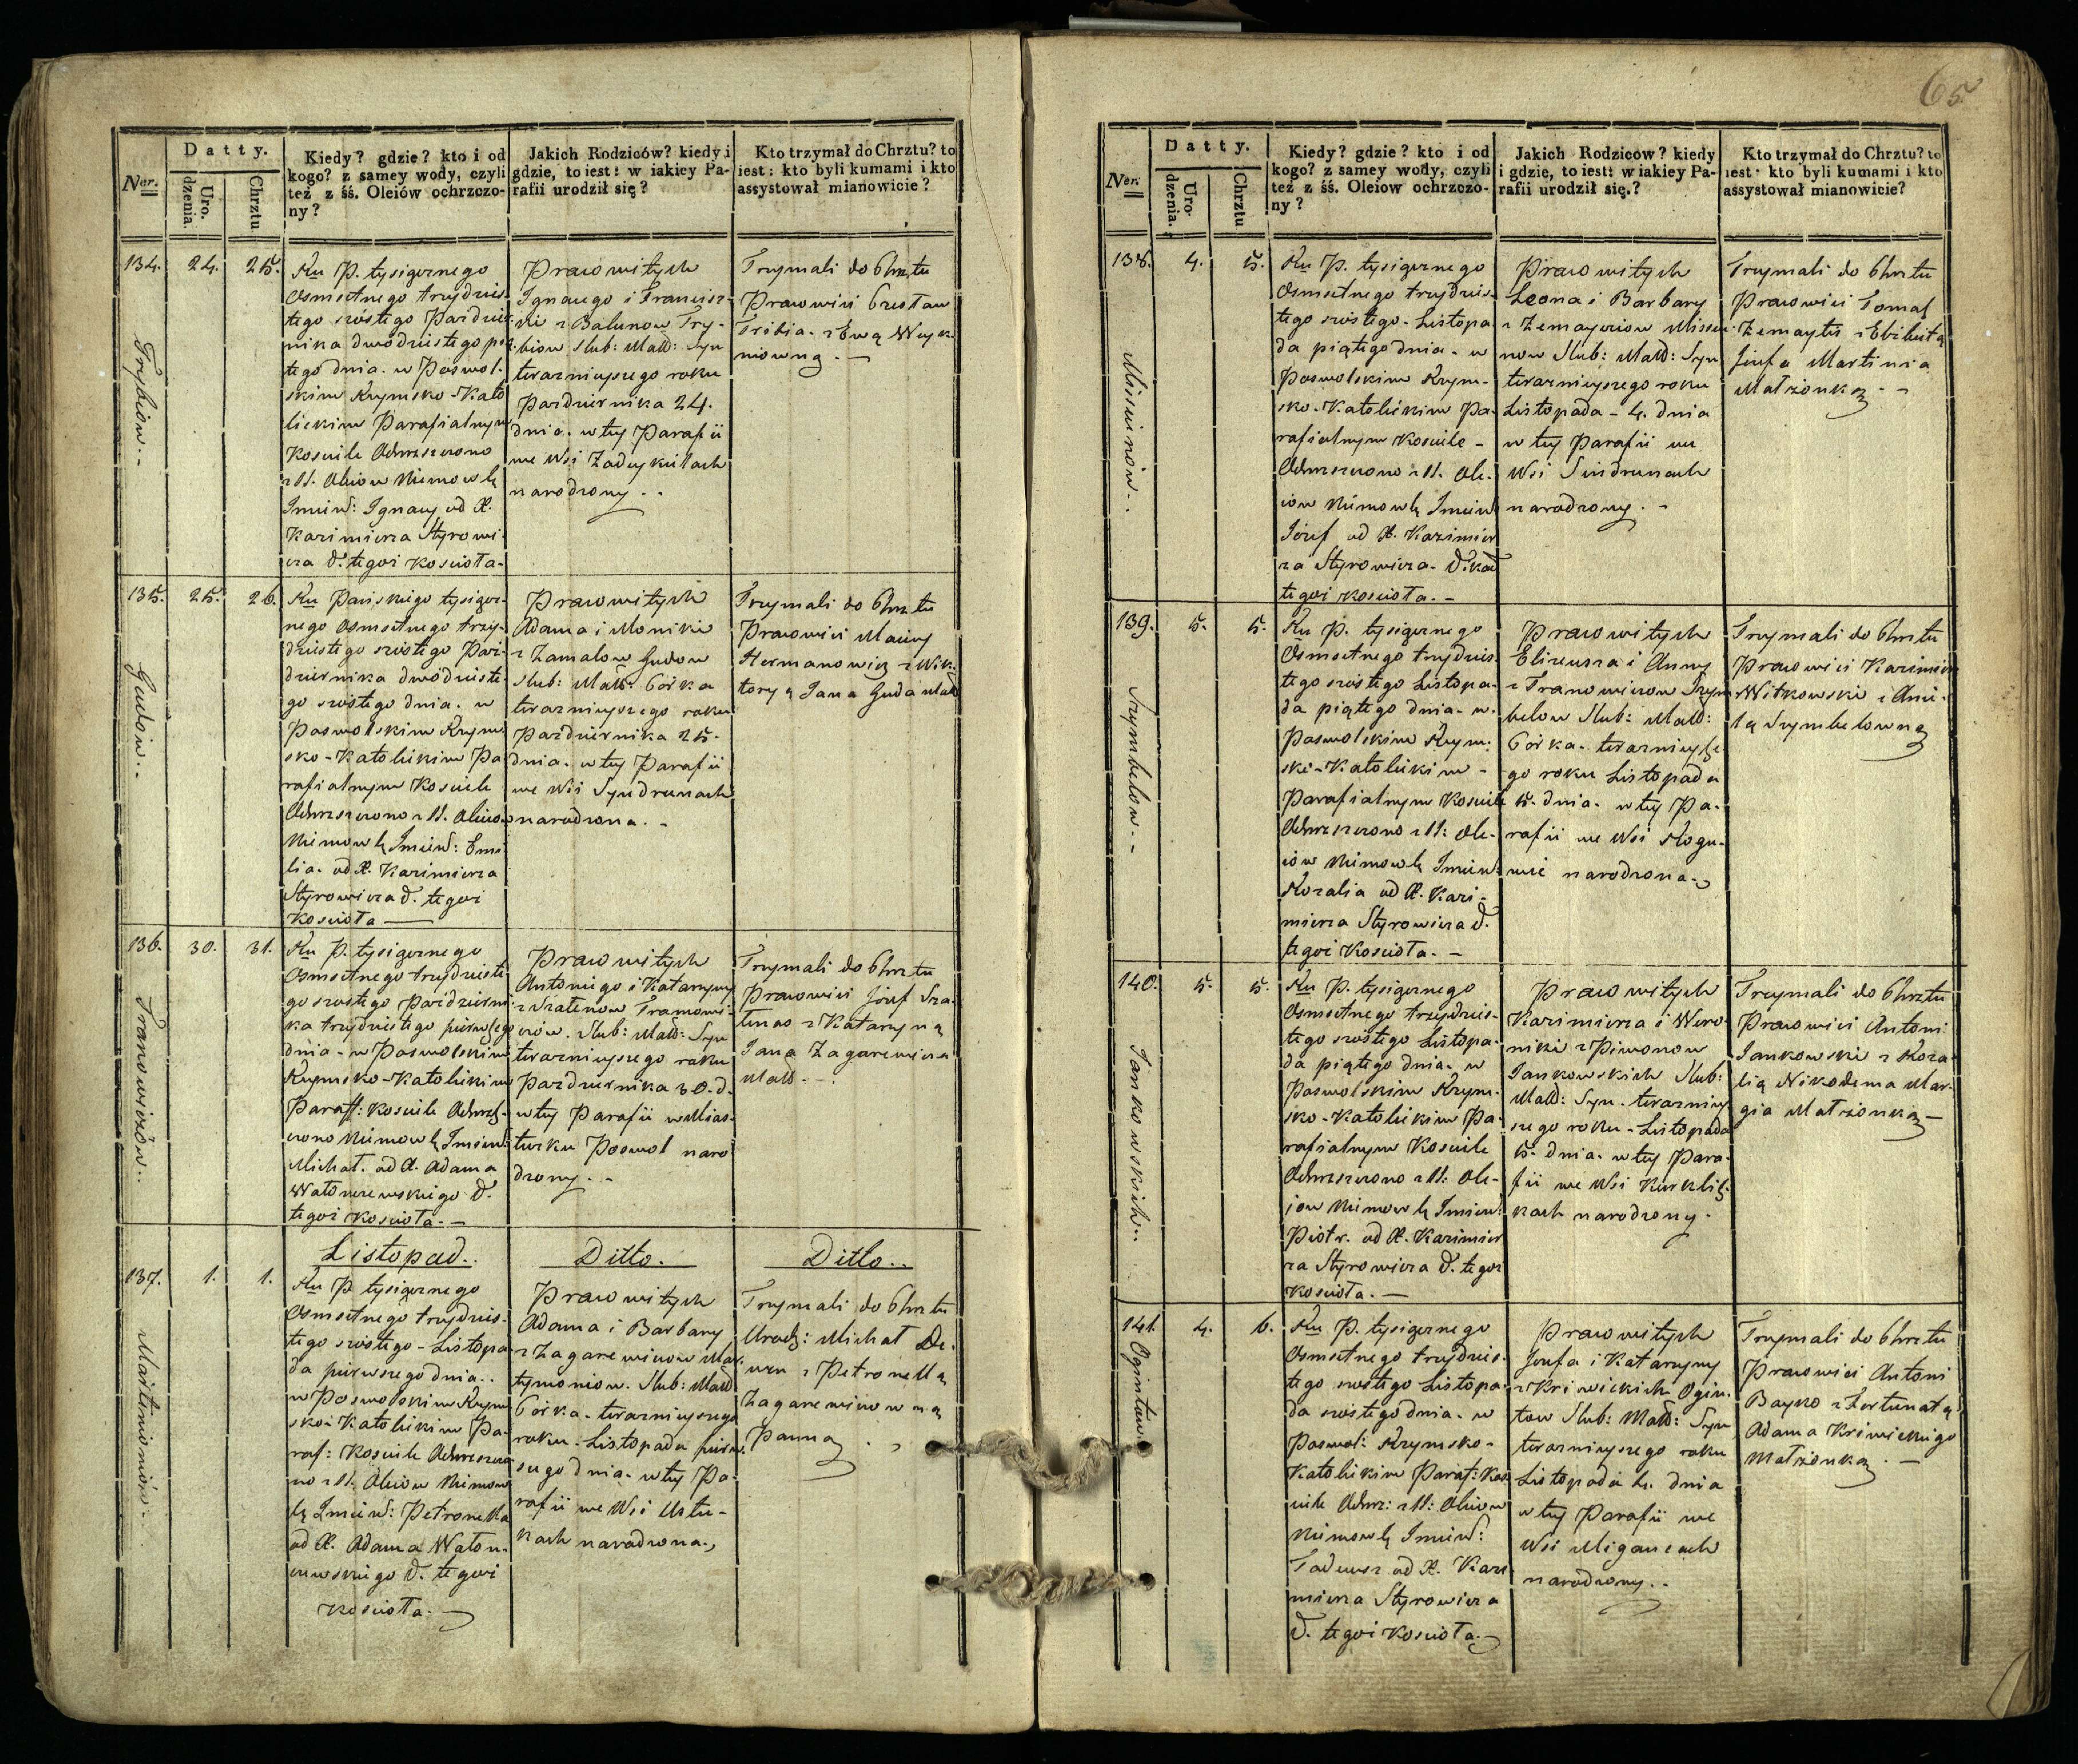 65
Datty.
Ner.
Uro.
dzenia.
Chrztu
Kiedy? gdzie? kto i od
kogo? z samey wody, czyli
też z śś. Oleiów ochrzczo-
ny?
Jakich Rodziców? kiedy i
gdzie, to iest: w iakiey Pa-
rafii urodził się?
Kto trzymał do Chrztu? to
iest: kto byli kumami i kto
assystował mianowicie?
134. 24. 25.
Trybiow.-
Ru P. tysiącznego
Osmsetnego trzydzies-
tego szóstego Paździer-
nika dwódziestego pią-
tego dnia. w Poswol-
skim Rzymsko-Kato
lickim Parafialnym
Kosciele Ochrzszczono
z SS. Oleiow Niemowlę
Imień: Ignacy od X.
Kazimierza Styrowi-
cza d. tegoż Koscioła-
Prawowitych
Ignacego i Francisz-
ki z Balunow Try-
biow Slub: Małż: Syn
terazniejszego roku
Października 24.
dnia. w tey Parafii
we Wsi Zadeykielach
narodzony..
Trzymali do Chrztu
Prawowici Czesław
Tribia. z Ewą Weyk-
niowną.-
135. 25. 26.
Gudów..
Ru Pańskiego tysiącz-
nego Osmsetnego trzy-
dziestego szóstego Paź-
dziernika dwódzieste-
go szóstego dnia. w
Poswolskim Rzym
sko-Katolickim Pa
rafialnym Kosciele
Ochrzszczono z SS. Oleiow
Niemowlę Imień: Emi
lia. od X. Kazimierza
Styrowicza d. tegoż
Kosciola
Prawowitych
Adama i Moniki
z Zamalow Gudow
Slub: Małż: Córka
terazniejszego roku
Października 25.
dnia. w tey Parafii
we Wsi Syndrunach
narodzona.-
Trzymali do Chrztu
Prawowici Maciey
Hermanowicz z Wik-
toryą Jana Guda Małż
136. 30. 31.
Tranowiczów..
Ru P. tysiącznego
Osmsetnego trzydzieste
go szostego Październi
ka trzydziestego pierwszego
dnia - w Poswolskim
Rzymsko-Katolickim
Paraff: Kosciele Ochrzsz-
czono Niemowlę Imień:
Michał. od X. Adama
Watonczewskiego d.
tegoż Kosciola.-
Prawowitych
Antoniego i Katarzyny
z Szatenow Tranowi-
czów. Slub: Małż: Syn
terazniejszego roku
Października 30. d.
w tey Parafii w Mias-
teczku Poswol naro
dzony..
Trzymali do Chrztu
Prawowici Józef Sza-
tenas z Katarzyną
Jana Zagarewicza
Małż.-
Listopad.. Ditto. Ditto..
137. 1. 1.
Martinioniów.
Ru P. tysiącznego
Osmsetnego trzydzies-
tego szóstego - Listopa
da pierwszego dnia..
w Poswolskim Rzym
sko-Katolickim Pa-
raf: Kosciele Ochrzszczo
no z SS. Oleiow Niemow
lę Imień: Petronella
od X. Adama Waton-
czewskiego d. tegoż
Kosciola.-
Prawowitych
Adama i Barbary
z Zagarewiczow Mar
tynoniow. Slub: Małż
Córka - terazniejszego
roku - Listopada pierw-
szego dnia. w tey Pa-
rafii we Wsi Ustu-
kach narodzona.,
Trzymali do Chrztu
Urodz: Michał De-
z Petronellą
Zagarewiczowną
Panną
Datty.
Ner.
Uro-
dzenia.
Chrztu
Kiedy? gdzie? kto i od
kogo? z samey wody, czyli
też z śś. Oleiow ochrzczo-
ny?
Jakich Rodzicow? kiedy
i gdzie, to iest: w iakiey Pa-
rafii urodził się.?
Kto trzymał do Chrztu? to
iest: kto byli kumami i kto
assystował mianowicie?
138. 4. 5.
Missiunów..
Ru P. tysiącznego
Osmsetnego trzydzies-
tego szóstego - Listopa
da piątego dnia - w
Poswolskim Rzym-
sko-Katolickim Pa-
rafialnym Kosciele -
Ochrzszczono z SS. Ole-
iow Niemowlę Imień
Józef od X. Kazimier
za Styrowicza - d.
tegoż Kosciola.-
Prawowitych
Leona i Barbary
z Zemayciow Missiu-
now Slub: Małż: Syn
terazniejszego roku
Listopada - 4. dnia
w tey Parafii we
Wsi Sindrunach
narodzony.-
Trzymali do Chrztu
Prawowici Tomaſ
Zemaytis z Elżbietą
Józefa Martinia
Małżonką.-
139. 5. 5.
Szymbelow.-
Ru P. tysiącznego
Osmsetnego trzydzies
tego szóstego Listopa-
da piątego dnia - w.
Poswolskim Rzym-
sko-Katolickim -
Parafialnym Kosciele
Ochrzszczono z SS: Ole-
iow Niemowlę Imień:
Rozalia od X. Kazi-
mierza Styrowicza d.
tegoż Kosciola.-
Prawowitych
Elizeusza i Anny
z Tranowiczow Szym
below Slub: Małż:
Córka - terazniejsze
go roku Listopada
5. dnia. w tey Pa-
rafii we Wsi
narodzona.
Trzymali do Chrztu
Prawowici Kazimierz
Witkowski z Anie-
lą Szymbelowną
140. 5. 5.
Jankowskich..
Ru P. tysiącznego
Osmsetnego trzydzies-
tego szostego Listopa-
da piątego dnia - w
Poswolskim Rzym-
sko-Katolickim Pa-
rafialnym Kosciele
Ochrzszczono z SS: Ole-
jow Niemowlę Imień:
Piotr. od X. Kazimier
za Styrowicza d. tegoż
Kosciola.-
Prawowitych
Kazimierza i Wero-
niki z Piwonow
Jankowskich Slub:
Małż: Syn - terazniey
szego roku - Listopada
5. dnia. w tey Para-
fii we Wsi Kurklisz-
kach narodzony.
Trzymali do Chrztu
Prawowici Antoni
Jankowski z Roza-
lią Nikodema Mar-
gia Małżonką-
141. 4. 6.
Ogintow.
Ru P. tysiącznego
Osmsetnego trzydzies-
tego szostego Listopa-
da szóstego dnia - w
Poswol: Rzymsko-
Katolickim Paraf: Kos
ciele Ochrz: z SS: Oleiow
Niemowlę Imień:
Tadeusz od X. Kazi
mierza Styrowicza
d. tegoż Kosciola.
Prawowitych
Jozefa i Katarzyny
z Kriwickich Ogin-
tow Slub: Małż: Syn
terazniejszego roku
Listopada 4. dnia
w tey Parafii we
Wsi Migancach
narodzony..
Trzymali do Chrztu
Prawowici Antoni
Bayko z Fortunatą
Adama Kriwickiego
Małżonką.-